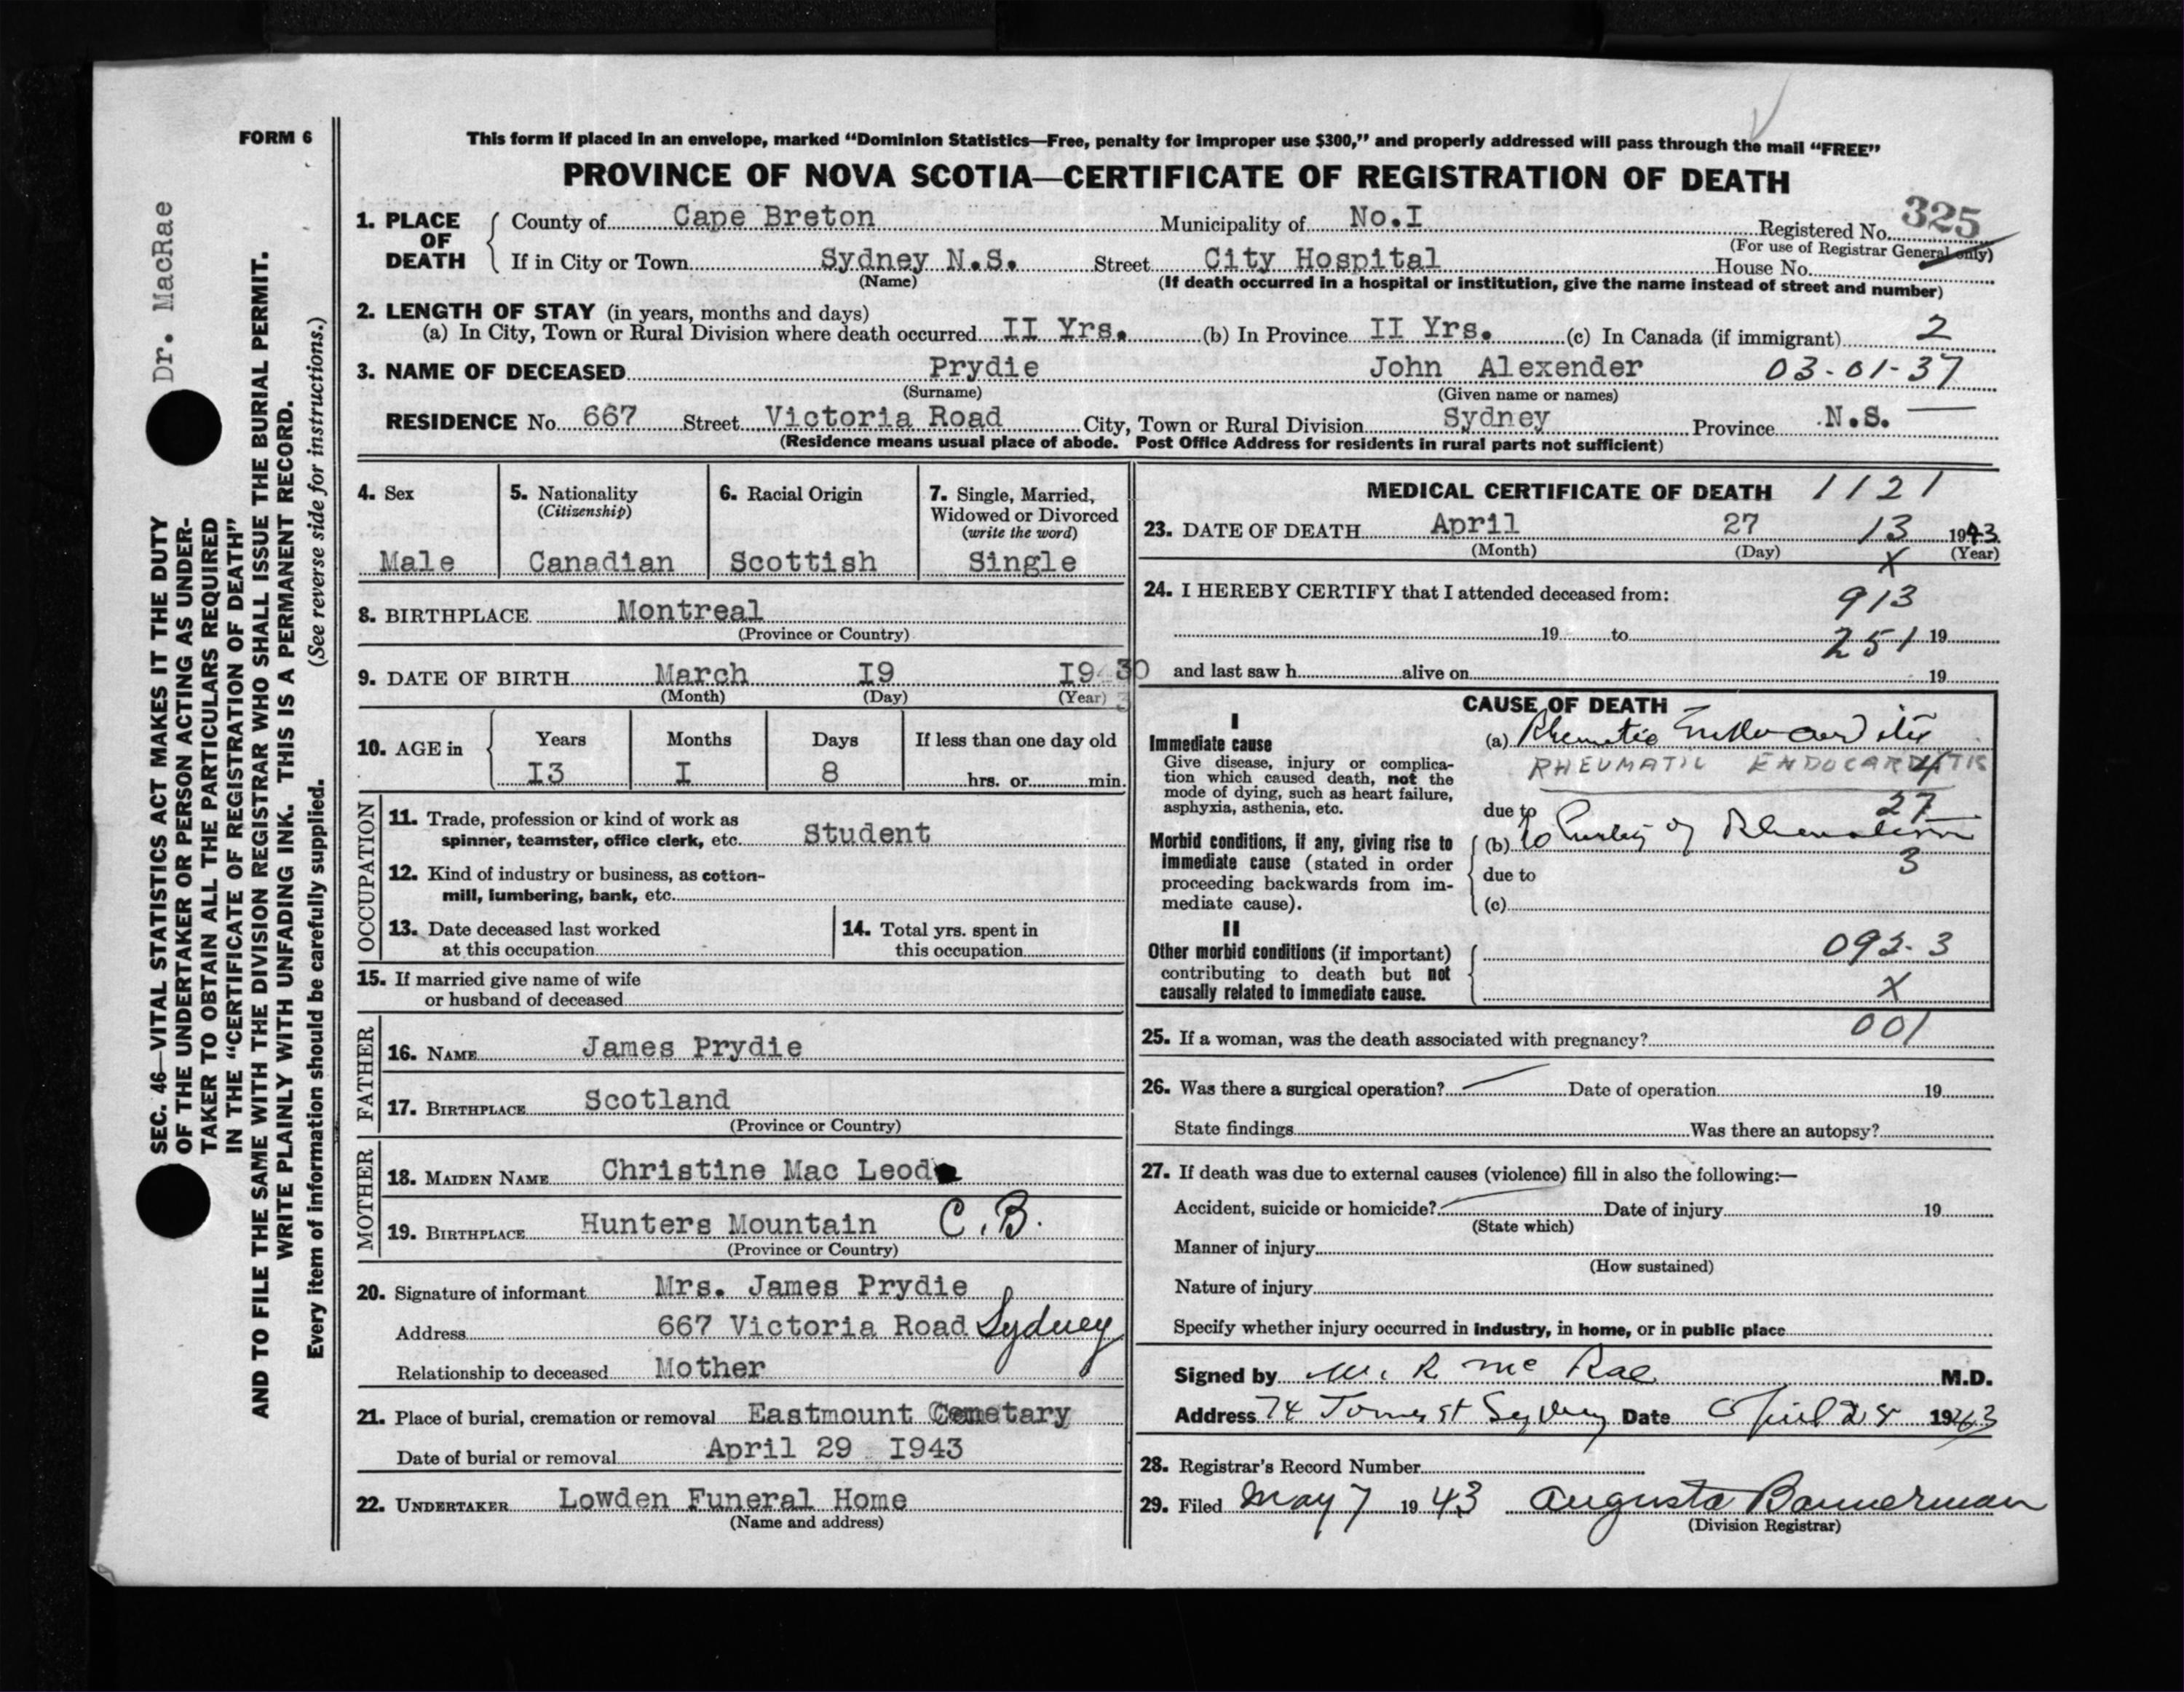 FORM 6
This form if placed in an envelope, marked “Dominion Statistics—Free, penalty for improper use $300,” and properly addressed will pass through the mail “FREE”
PROVINCE OF NOVA SCOTIA—CERTIFICATE OF REGISTRATION OF DEATH
Dr. MacRae
SEC. 46—VITAL STATISTICS ACT MAKES IT THE DUTY
OF THE UNDERTAKER OR PERSON ACTING AS UNDER-
TAKER TO OBTAIN ALL THE PARTICULARS REQUIRED
IN THE “CERTIFICATE OF REGISTRATION OF DEATH”
AND TO FILE THE SAME WITH THE DIVISION REGISTRAR WHO SHALL ISSUE THE BURIAL PERMIT.
WRITE PLAINLY WITH UNFADING INK. THIS IS A PERMANENT RECORD.
Every item of information should be carefully supplied. (See reverse side for instructions.)
1. PLACE OF DEATH
County of Cape Breton Municipality of No.I Registered No. 325
(For use of Registrar General only)
If in City or Town Sydney N.S. Street City Hospital House No.
(Name) (If death occurred in a hospital or institution, give the name instead of street and number)
2. LENGTH OF STAY (in years, months and days)
(a) In City, Town or Rural Division where death occurred II Yrs. (b) In Province II Yrs. (c) In Canada (if immigrant) 2
3. NAME OF DECEASED Prydie John Alexender 03-01-37
(Surname) (Given name or names)
RESIDENCE No. 667 Street Victoria Road City, Town or Rural Division Sydney Province N.S.
(Residence means usual place of abode. Post Office Address for residents in rural parts not sufficient)
4. Sex
Male
5. Nationality
(Citizenship)
Canadian
6. Racial Origin
Scottish
7. Single, Married,
Widowed or Divorced
(write the word)
Single
8. BIRTHPLACE Montreal
(Province or Country)
9. DATE OF BIRTH March I9 I9 30
(Month) (Day) (Year)
10. AGE in
Years Months Days If less than one day old
I3 I 8 hrs. or min.
OCCUPATION
11. Trade, profession or kind of work as
spinner, teamster, office clerk, etc. Student
12. Kind of industry or business, as cotton-
mill, lumbering, bank, etc.
13. Date deceased last worked
at this occupation
14. Total yrs. spent in
this occupation
15. If married give name of wife
or husband of deceased
FATHER
16. NAME James Prydie
17. BIRTHPLACE Scotland
(Province or Country)
MOTHER
18. MAIDEN NAME Christine Mac Leod
19. BIRTHPLACE Hunters Mountain C.B.
(Province or Country)
20. Signature of informant Mrs. James Prydie
Address 667 Victoria Road Sydney
Relationship to deceased Mother
21. Place of burial, cremation or removal Eastmount Cemetary
Date of burial or removal April 29 I943
22. UNDERTAKER Lowden Funeral Home
(Name and address)
MEDICAL CERTIFICATE OF DEATH 1121
23. DATE OF DEATH April 27 13 1943
(Month) (Day) X (Year)
24. I HEREBY CERTIFY that I attended deceased from:
913
19 to 251 19
and last saw h alive on 19
CAUSE OF DEATH
I
Immediate cause
Give disease, injury or complica-
tion which caused death, not the
mode of dying, such as heart failure,
asphyxia, asthenia, etc.
(a) Rhematic Endocarditis
RHEUMATIC ENDOCARDITIS
27
due to
Morbid conditions, if any, giving rise to
immediate cause (stated in order
proceeding backwards from im-
mediate cause).
(b) of Rheumatism
3
due to
(c)
II
Other morbid conditions (if important)
contributing to death but not
causally related to immediate cause.
092-3
X
25. If a woman, was the death associated with pregnancy? 001
26. Was there a surgical operation? Date of operation 19
State findings Was there an autopsy?
27. If death was due to external causes (violence) fill in also the following:—
Accident, suicide or homicide? Date of injury 19
(State which)
Manner of injury
(How sustained)
Nature of injury
Specify whether injury occurred in industry, in home, or in public place
Signed by W. R Mc Rae M.D.
Address 74 st Sydney Date April 28 1943
28. Registrar's Record Number
29. Filed May 7 19 43 Augusta Bannerman
(Division Registrar)